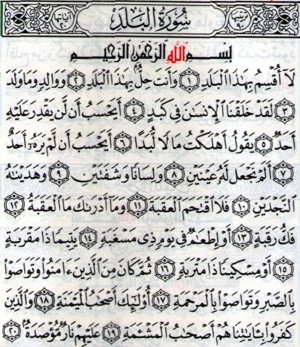 سُورَةُ الْبَلَدِ
بِسْمِ اللَّهِ الرَّحْمَٰنِ الرَّحِيمِ
لَا أُقْسِمُ بِهَٰذَا الْبَلَدِ ١ وَأَنتَ حِلٌّ بِهَٰذَا الْبَلَدِ ٢ وَوَالِدٍ وَمَا وَلَدَ
٣ لَقَدْ خَلَقْنَا الْإِنسَٰنَ فِي كَبَدٍ ٤ أَيَحْسَبُ أَن لَّن يَقْدِرَ عَلَيْهِ
أَحَدٌ ٥ يَقُولُ أَهْلَكْتُ مَالًا لُّبَدًا ٦ أَيَحْسَبُ أَن لَّمْ يَرَهُ أَحَدٌ
٧ أَلَمْ نَجْعَل لَّهُ عَيْنَيْنِ ٨ وَلِسَانًا وَشَفَتَيْنِ ٩ وَهَدَيْنَٰهُ
النَّجْدَيْنِ ١٠ فَلَا اقْتَحَمَ الْعَقَبَةَ ١١ وَمَا أَدْرَىٰكَ مَا الْعَقَبَةُ ١٢
فَكُّ رَقَبَةٍ ١٣ أَوْ إِطْعَٰمٌ فِي يَوْمٍ ذِي مَسْغَبَةٍ ١٤ يَتِيمًا ذَا مَقْرَبَةٍ
١٥ أَوْ مِسْكِينًا ذَا مَتْرَبَةٍ ١٦ ثُمَّ كَانَ مِنَ الَّذِينَ ءَامَنُوا وَتَوَاصَوْا
بِالصَّبْرِ وَتَوَاصَوْا بِالْمَرْحَمَةِ ١٧ أُولَٰئِكَ أَصْحَٰبُ الْمَيْمَنَةِ ١٨ وَالَّذِينَ
كَفَرُوا بِـَٔايَٰتِنَا هُمْ أَصْحَٰبُ الْمَشْـَٔمَةِ ١٩ عَلَيْهِمْ نَارٌ مُّؤْصَدَةٌ ٢٠